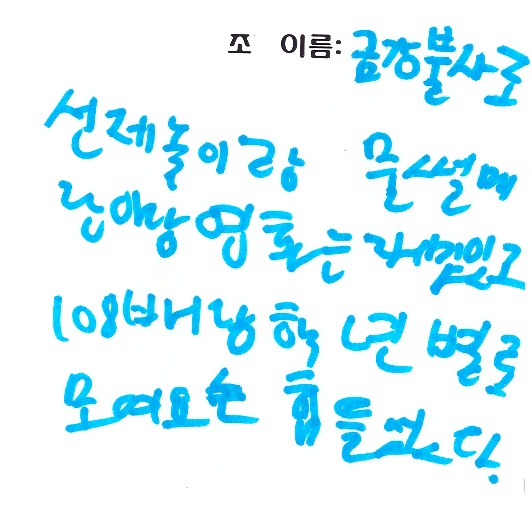 조 이름: 금강불사로
선제놀이랑 물썰매
란아랑 영화는 재밌있고
108배랑 학년별로
모여요는 힘들었다.